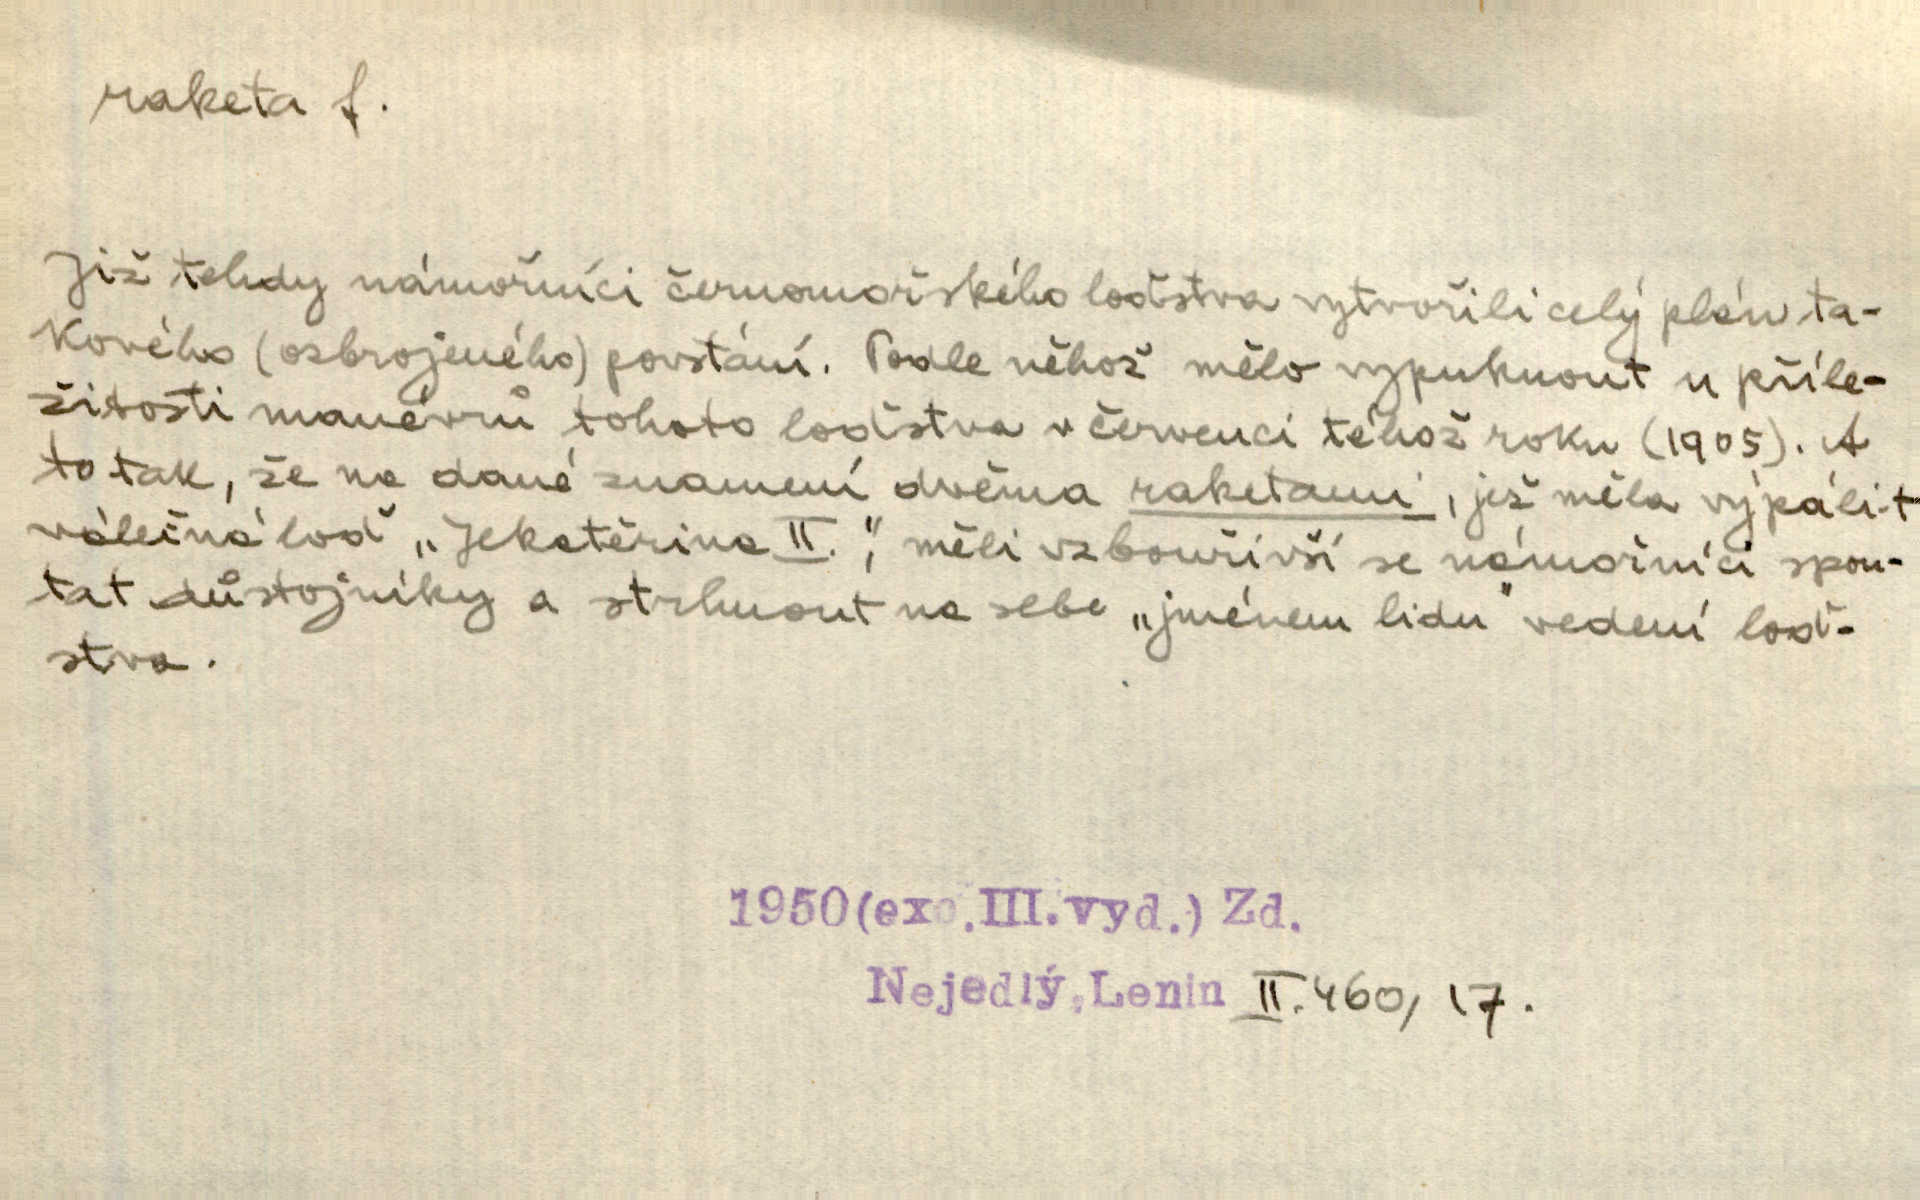 raketa f.
Již tehdy námořníci černomořského loďstva vytvořili celý plán ta-
kového (ozbrojeného) povstání. Podle něhož mělo vypuknout u příle-
žitosti manévrů tohoto loďstva v červenci téhož roku (1905). A
to tak, že na dané znamení dvěma raketami, jež měla vypálit
válečná loď „Jekatěrina II.“, měli vzbouřivší se námořníci spou-
tat důstojníky a strhnout na sebe „jménem lidu“ vedení loď-
stva.
1950(exc.III.vyd.) Zd.
Nejedlý, Lenin II. 460, 17.